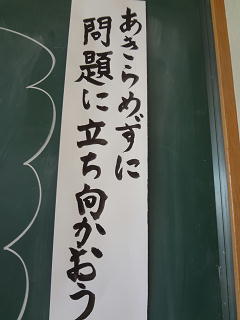 あきらめずに
問題に立ち向かおう